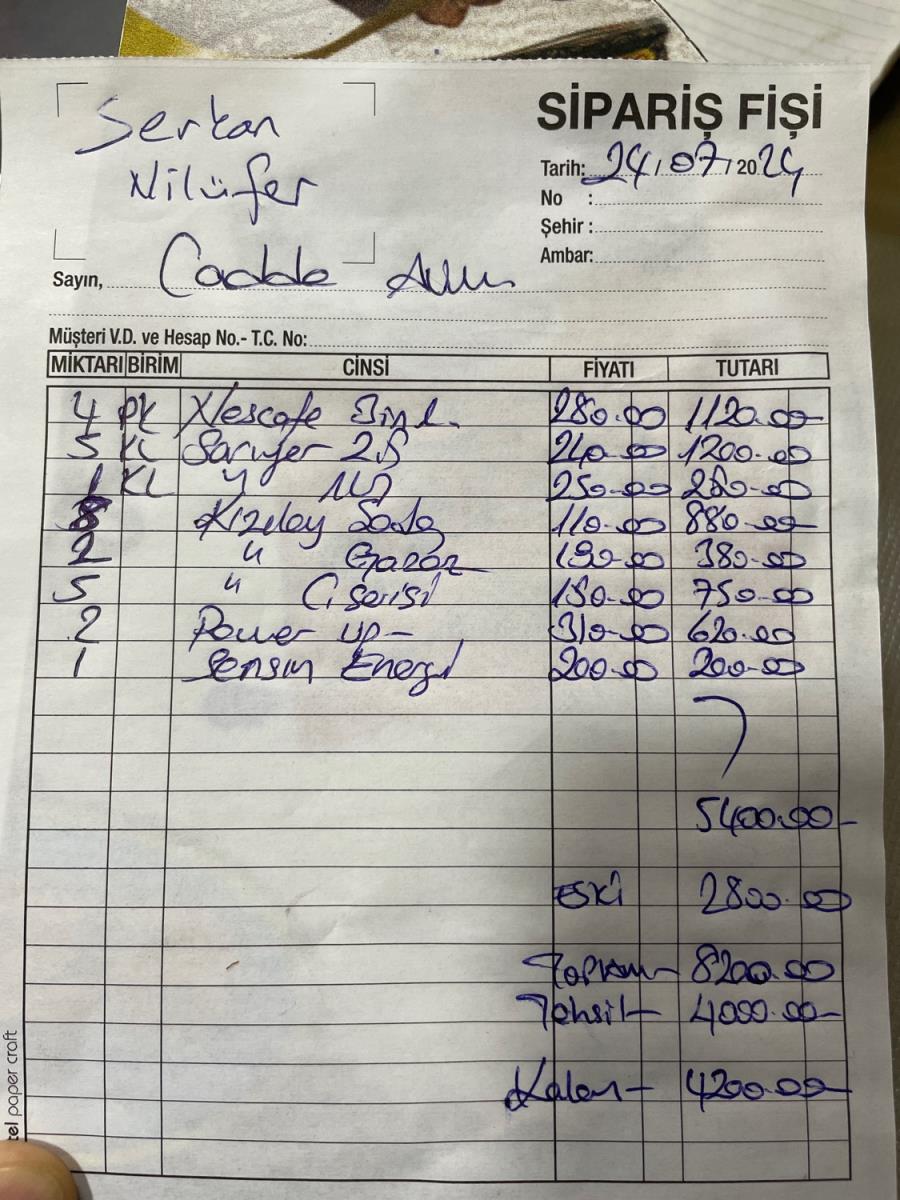 Serkan
Nilüfer
SİPARİŞ FİŞİ
Tarih: 24/07/2024
No :
Şehir :
Ambar:
Sayın, Cadde
Müşteri V.D. ve Hesap No.- T.C. No:
MİKTARI BİRİM CİNSİ FİYATI TUTARI
4 PK Nescafe 280.00 1120.00
5 KL Sarıyer 2.5 240.00 1200.00
1 KL " 250.00 250.00
8 Kızılay Sade 110.00 880.00
2 " Gazoz 190.00 380.00
5 " C. Serisi 150.00 750.00
2 Power up- 310.00 620.00
1 Sensun Energi 200.00 200.00
5400.00-
Eski 2800.00
Toplam- 8200.00
Tahsil- 4000.00-
Kalan- 4200.00-
paper craft